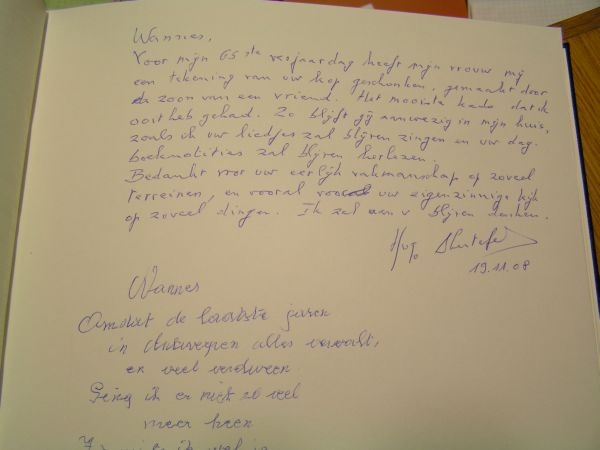 Wannes,
Voor mijn 65ste verjaardag heeft mijn vrouw mij
een tekening van uw kop geschonken, gemaakt door
de zoon van een vriend. Het mooiste kado dat ik
ooit heb gehad. Zo blijft gij aanwezig in mijn huis,
zoals ik uw liedjes zal blijven zingen en uw dag-
boeknotities zal blijven herlezen.
Bedankt voor uw eerlijk vakmanschap op zoveel
terreinen, en vooral voor uw eigenzinnige kijk
op zoveel dingen. Ik zal aan u blijven denken.
Hugo
19.11.08
Wannes
Omdat de laatste jaren
in Antwerpen alles verwatert,
en veel verdween
Ging ik er niet zo veel
meer heen